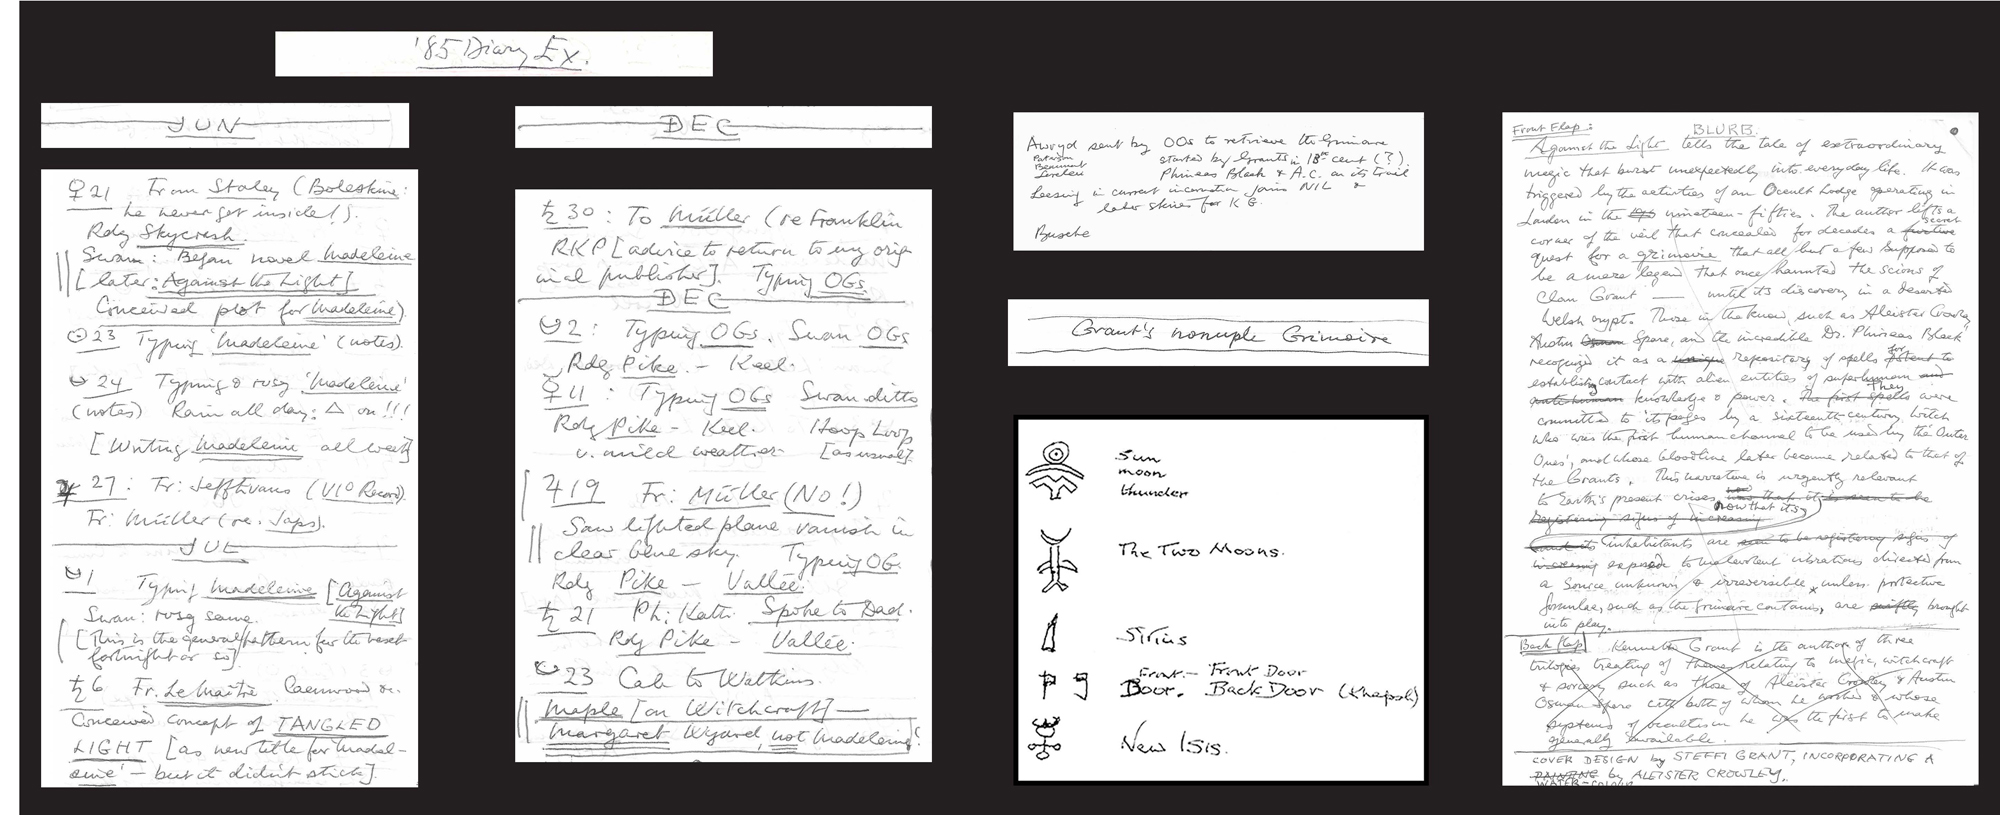 '85 Diary Ex.
JUN
♀ 21 From Staley (Boleskine:
he never got inside!).
Rdg Skycrash.
Swan: Began novel Madeleine
[later: Against the Light]
Conceived plot for Madeleine).
☉ 23 Typing 'Madeleine' (notes).
24 Typing & rvsg 'Madeleine'
(notes) Rain all day: △ on !!!
[Writing Madeleine all week]
27: Fr: Jeff Evans (VIO Record).
Fr: Müller (re. Japs).
JUL
1 Typing Madeleine [Against
the Light]
Swan: rvsg same.
[This is the general pattern for the next
fortnight or so]
♄ 6 Fr. Le Maitre Caenwood &c.
Conceived concept of TANGLED
LIGHT [as new title for 'Madel-
eine' – but it didn't stick].
DEC
♄ 30: To Müller (re Franklin
RKP [advice to return to my orig-
inal publisher]. Typing OGs.
DEC
2: Typing OGs. Swan OGs
Rdg Pike. – Keel.
♀ 11: Typing OGs Swan ditto
Rdg Pike – Keel. Hoop Loop
v. mild weather [as usual].
♃ 19 Fr: Müller (No!)
Saw lighted plane vanish in
clear blue sky. Typing OG.
Rdg Pike – Vallée.
♄ 21 Ph: Kath. Spoke to Dad.
Rdg Pike – Vallée.
23 Cab to Watkins.
Maple [on Witchcraft] —
Margaret Wyard, not Madeleine!
Awryd sent by OOs to retrieve the Grimoire
started by Grants in 18th cent (?).
Phineas Black & A.C. on its trail
Leesing in current incarnation joins NIL &
later skries for KG.
Busche
Grant's nonuple Grimoire
Sun
moon
thunder
The Two Moons.
Sirius
Front – Front Door
Door. Back Door (Khepsh)
New Isis.
Front Flap: BLURB.
Against the Light tells the tale of extraordinary
magic that burst unexpectedly into everyday life. It was
triggered by the activities of an Occult Lodge operating in
London in the nineteen-fifties. The author lifts a
corner of the veil that concealed for decades a secret
quest for a grimoire that all but a few supposed to
be a mere legend that once haunted the scions of
Clan Grant — until its discovery in a deserted
Welsh crypt. Those in the know, such as Aleister Crowley,
Austin Osman Spare, and the incredible Dr. Phineas Black
recognized it as a unique repository of spells for
establishing contact with alien entities of superhuman
knowledge & power. They were
committed to its pages by a sixteenth-century witch
who was the first human channel to be used by the 'Outer
Ones', and whose bloodline later became related to that of
the Grants. This narrative is urgently relevant
to Earth's present crises, now that its
inhabitants are
exposed to malevolent vibrations directed from
a source unknown & irreversible unless protective
formulae, such as the grimoire contains, are swiftly brought
into play.
Back flap Kenneth Grant is the author of three
trilogies treating of themes relating to magic, witchcraft
& sorcery such as those of Aleister Crowley & Austin
Osman Spare with both of whom he worked & whose
systems of occultism he was the first to make
generally available.
COVER DESIGN by STEFFI GRANT, INCORPORATING A
PAINTING by ALEISTER CROWLEY.
WATER-COLOUR